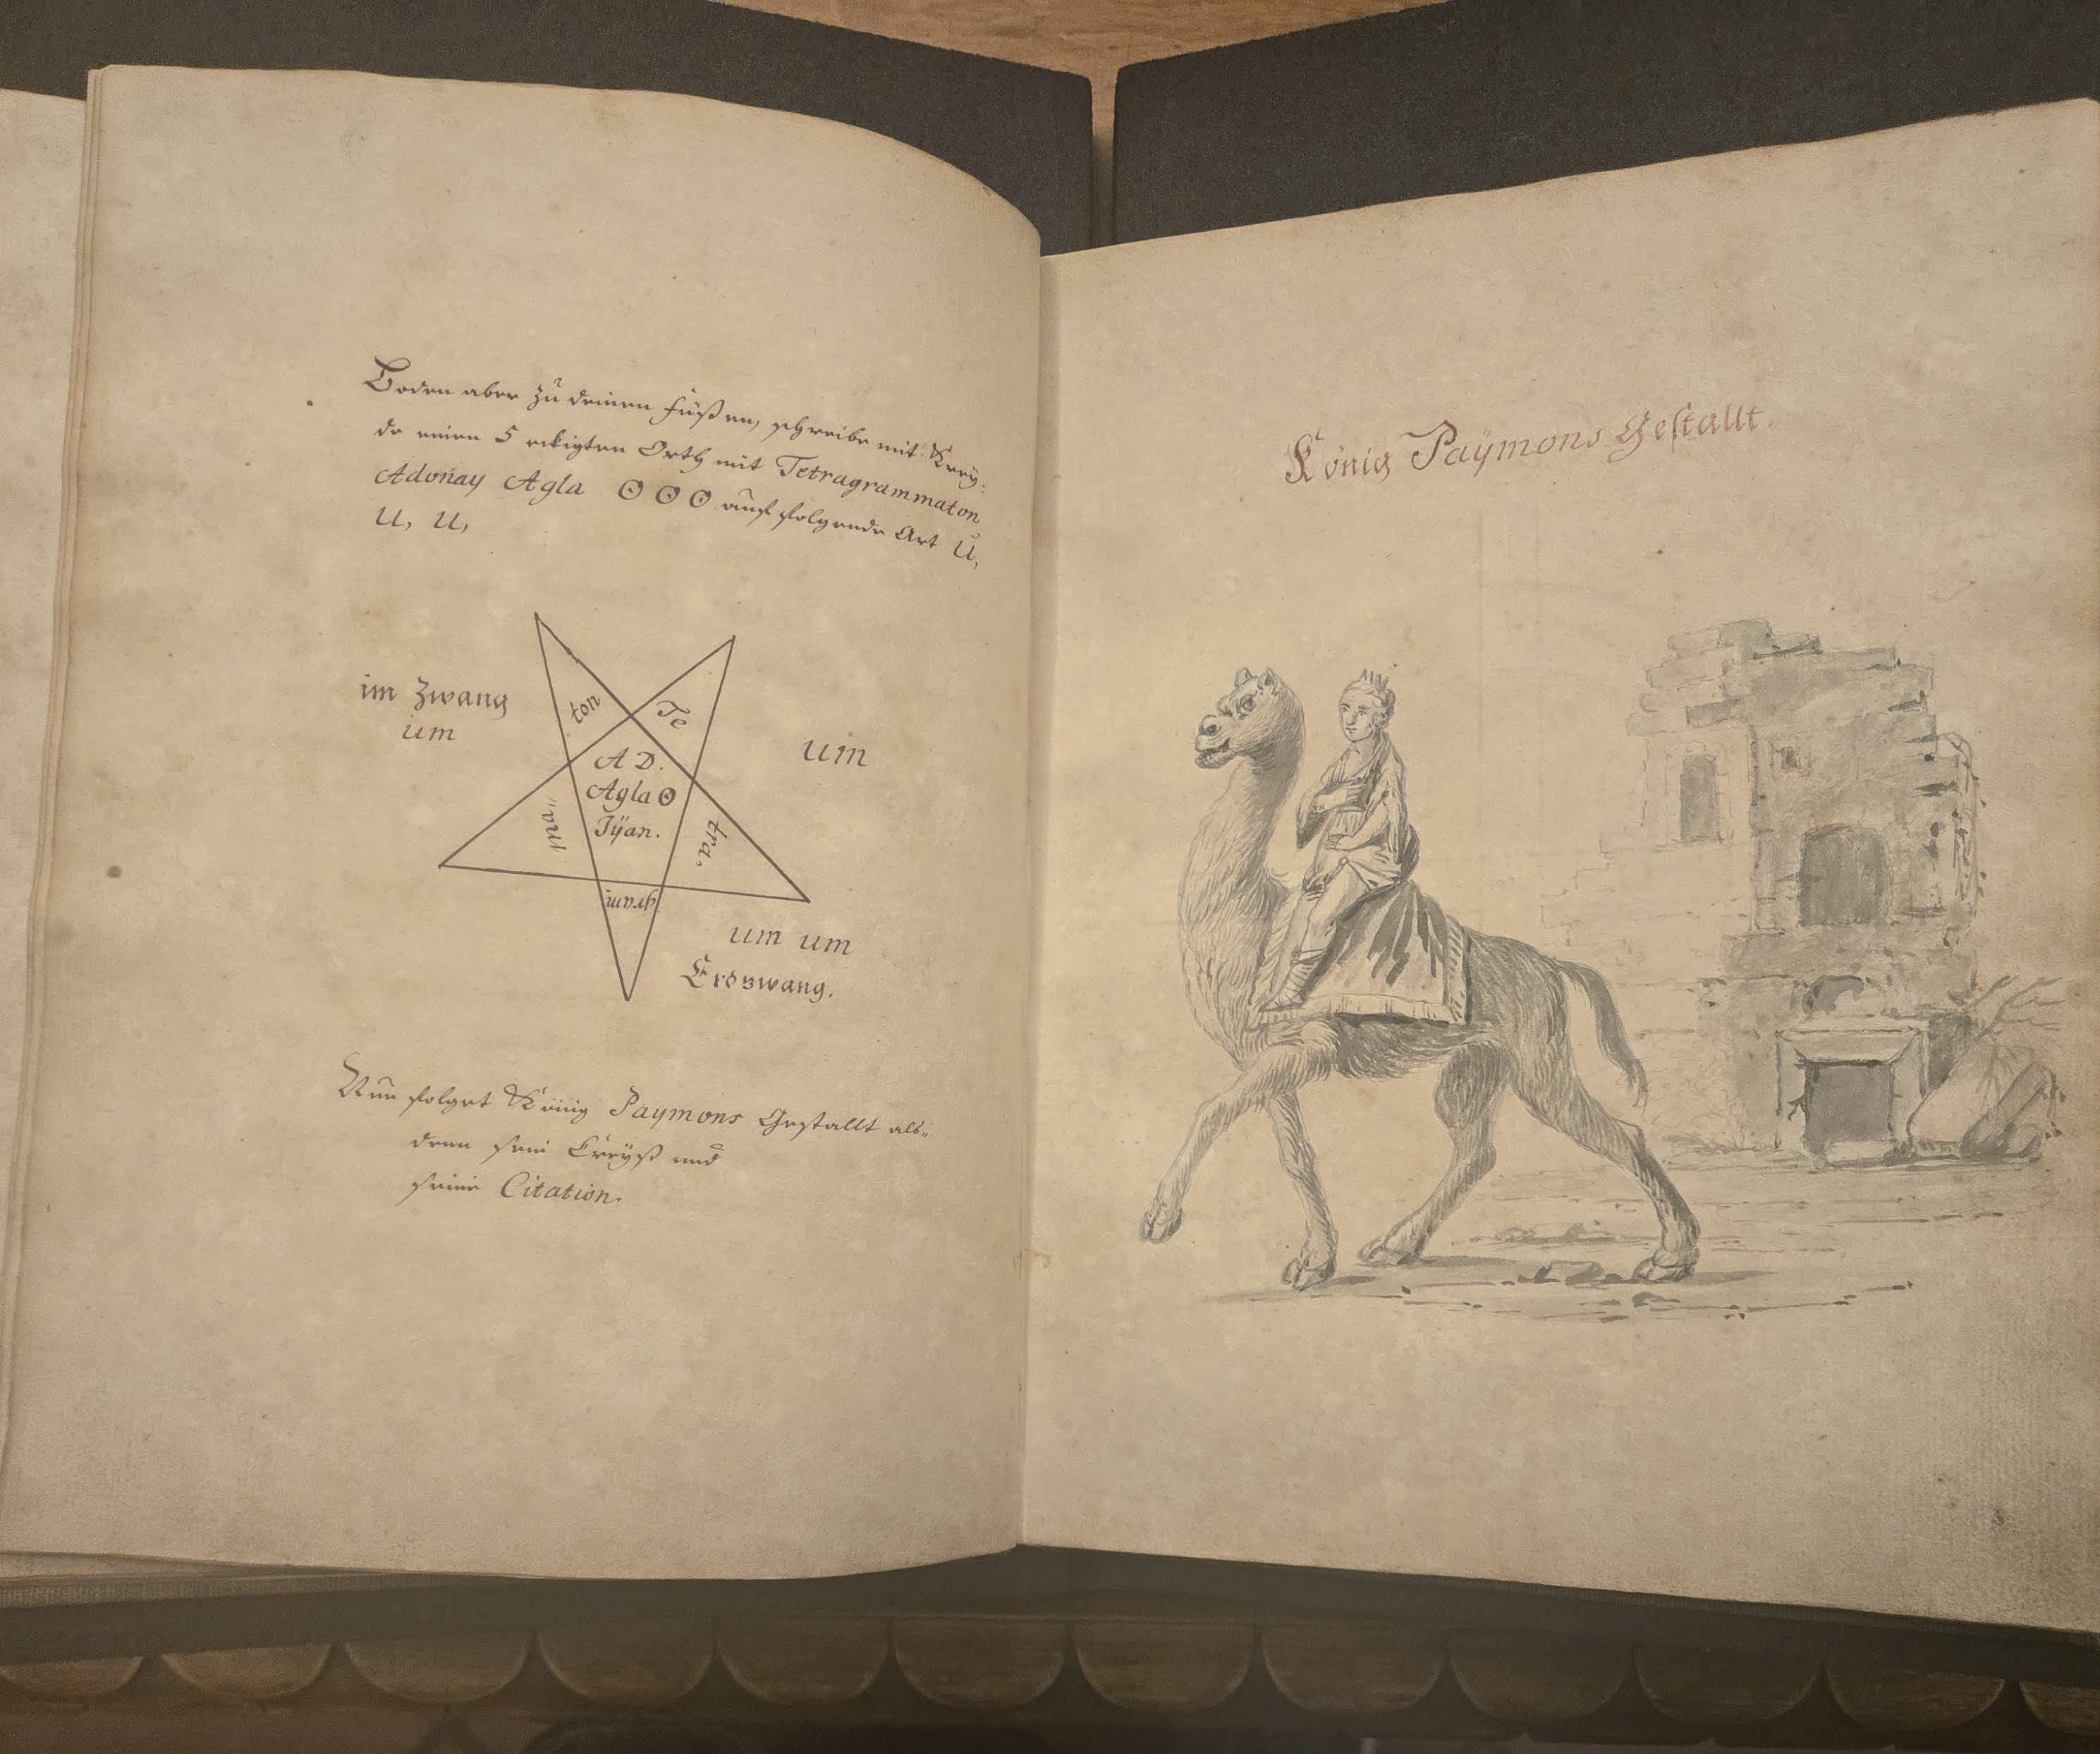 Boden aber zu deinen Füßen, schreibe mit Krey-
de einen 5 eckigten Orth mit Tetragrammaton
Adonay Agla ʘ ʘ ʘ auf folgende Art U,
U, U,
im Zwang
um
ton
Te
um
A D.
Agla ʘ
Tÿan.
ma"
tra,
grami
um um
Erdzwang.
Nun folget König Paymons Gestallt als-
denn sein Creÿß und
seine Citation.
König Paÿmons Gestallt.